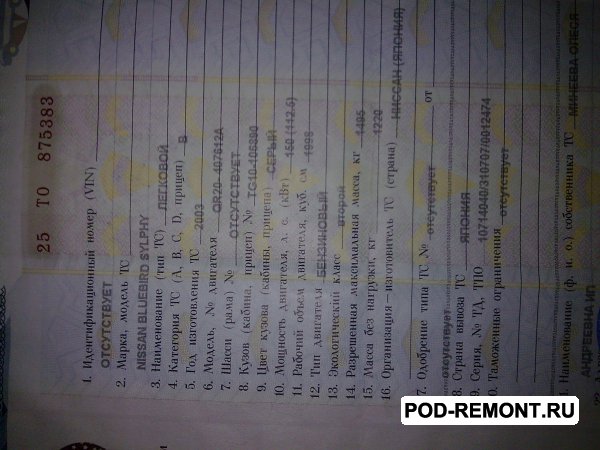 25 ТО 875383
1. Идентификационный номер (VIN)
ОТСУТСТВУЕТ
2. Марка, модель ТС
NISSAN BLUEBIRD SYLPHY
3. Наименование (тип ТС) ЛЕГКОВОЙ
4. Категория ТС (А, В, С, D, прицеп) В
5. Год изготовления ТС 2003
6. Модель, № двигателя QR20-407612A
7. Шасси (рама) № ОТСУТСТВУЕТ
8. Кузов (кабина, прицеп) № TG10-106390
9. Цвет кузова (кабины, прицепа) СЕРЫЙ
10. Мощность двигателя, л. с. (кВт) 150 (112.5)
11. Рабочий объем двигателя, куб. см 1998
12. Тип двигателя БЕНЗИНОВЫЙ
13. Экологический класс второй
14. Разрешенная максимальная масса, кг 1495
15. Масса без нагрузки, кг 1220
16. Организация—изготовитель ТС (страна) НИССАН (ЯПОНИЯ)
7. Одобрение типа ТС № отсутствует от
отсутствует
8. Страна вывоза ТС ЯПОНИЯ
9. Серия, № ТД, ТПО 10714040/310707/0012474
0. Таможенные ограничения отсутствуют
1. Наименование (ф. и. о.) собственника ТС МИНЕЕВА ОЛЕСЯ
АНДРЕЕВНА ИП
POD-REMONT.RU